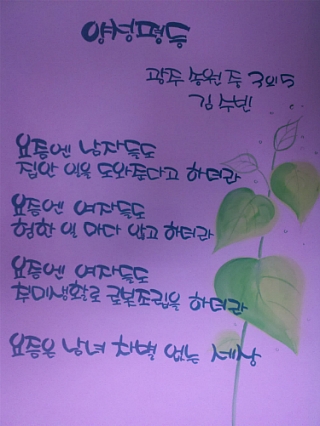 양성평등
광주 농원 중 3의5
김 수빈
요즘엔 남자들도
집안 일을 도와준다고 하더라
요즘엔 여자들도
험한 일 마다 않고 하더라
요즘엔 여자들도
취미생활로 로봇조립을 하더라
요즘은 남녀 차별 없는 세상